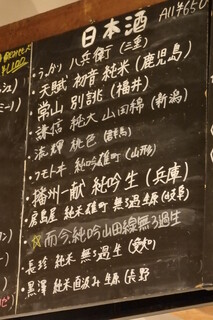 日本酒 All ¥650
うっかり八兵衛(三重)
天賦 初音 純米(鹿児島)
常山 別誂(福井)
謙信 純大 山田錦(新潟)
流輝 桃色(群馬)
フモトヰ 純吟雄町(山形)
播州一献 純吟 生(兵庫)
房島屋 純米雄町 無ろ過生原(岐阜)
而今 純吟山田錦無ろ過生
長珍 純米 無ろ過 生(愛知)
黒澤 純米直汲み 生原(長野)